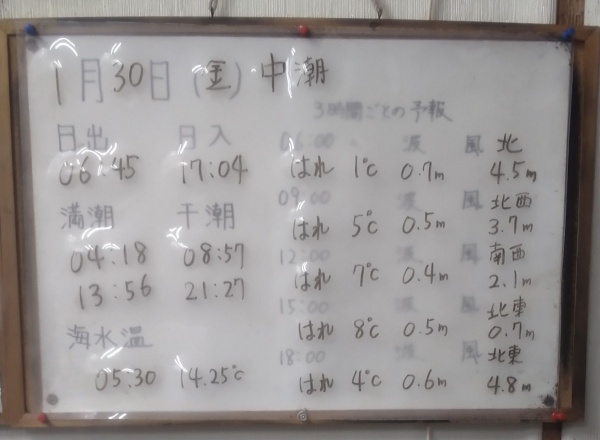 1月30日(金)中潮
3時間ごとの予報
日出 日入
06:45 17:04
満潮 干潮
04:18 08:57
13:56 21:27
海水温
05:30 14.25℃
06:00 波 風 北
はれ 1℃ 0.7m 4.5m
09:00 波 風 北西
はれ 5℃ 0.5m 3.7m
12:00 波 風 南西
はれ 7℃ 0.4m 2.1m
15:00 波 風 北東
はれ 8℃ 0.5m 0.7m
18:00 波 風 北東
はれ 4℃ 0.6m 4.8m